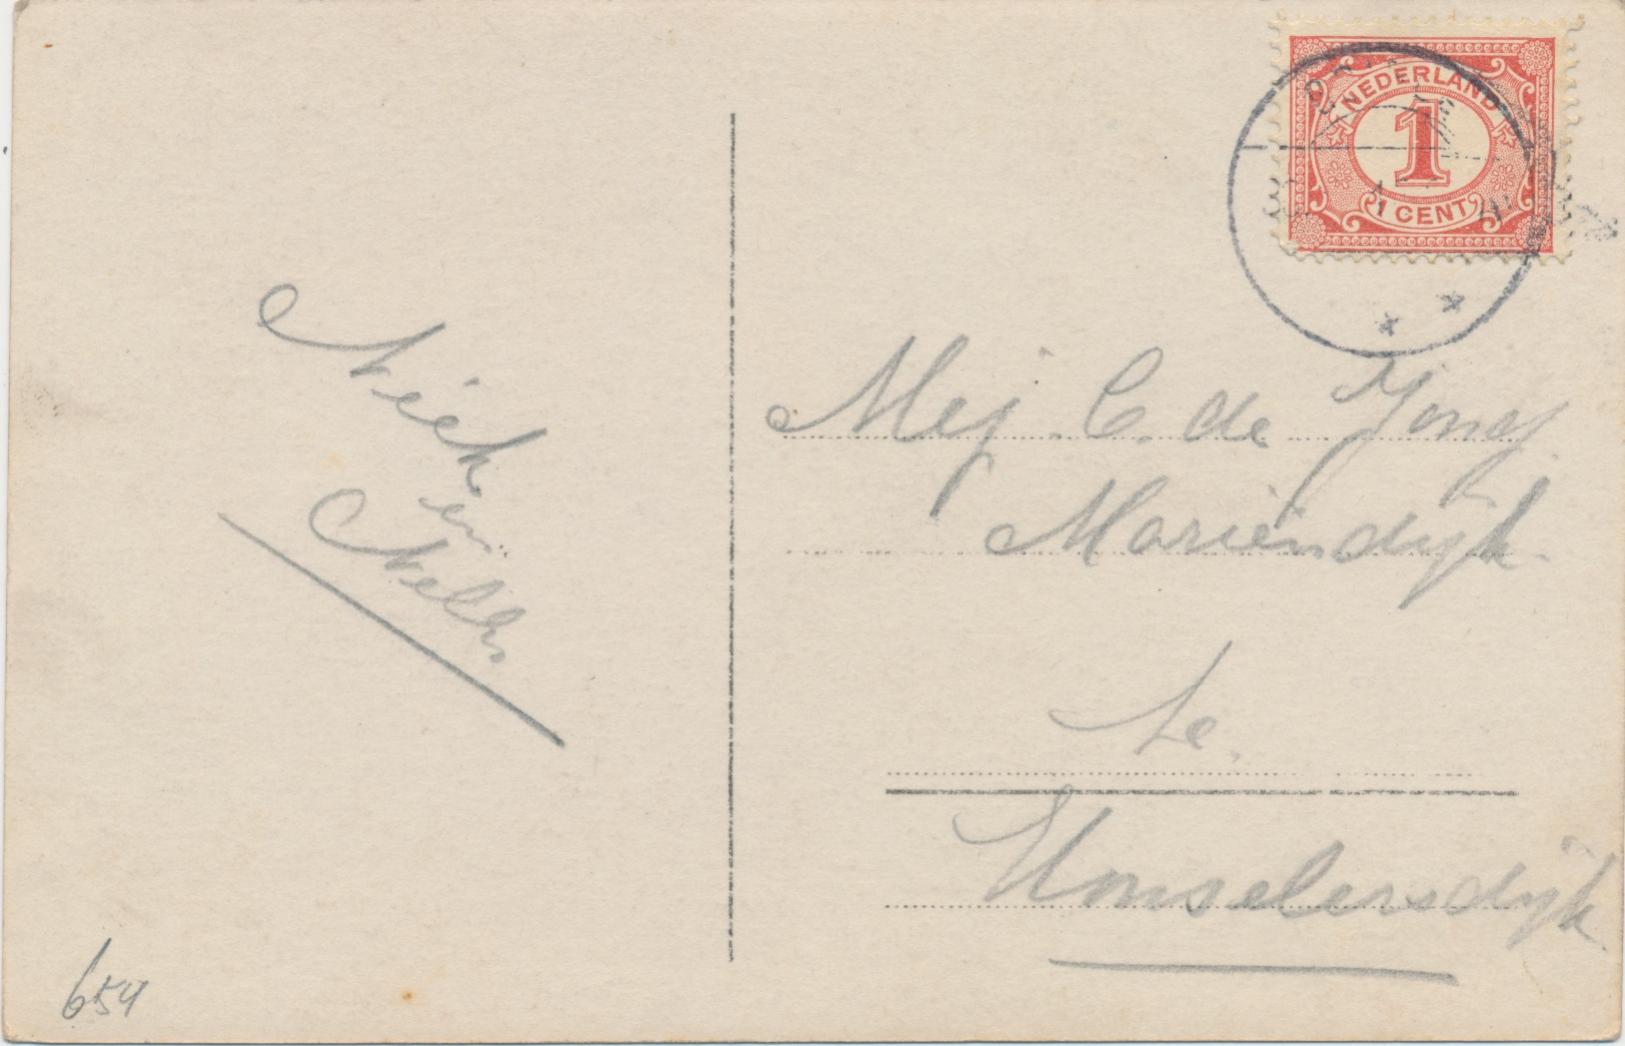 NEDERLAND
1
1 CENT
Niek
en
Nelly
Mej. C. de Jong
Mariëndijk
te
Honselersdijk
654